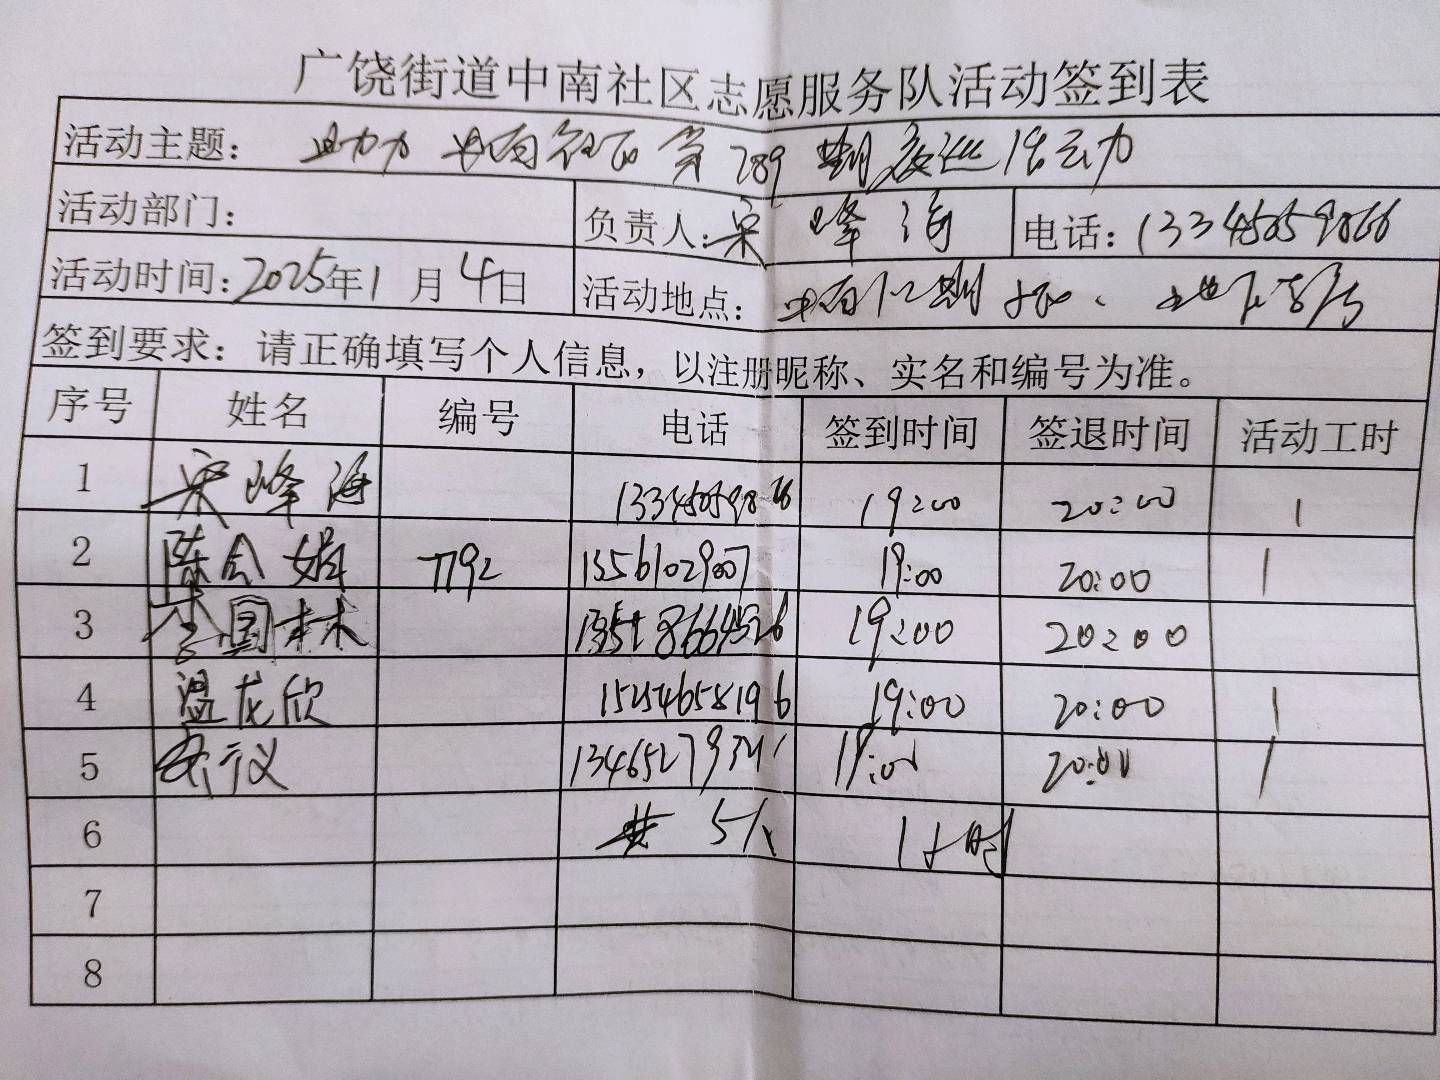 广饶街道中南社区志愿服务队活动签到表
活动主题: 助力中南社区第789期夜巡活动
活动部门:
负责人: 宋峰海 电话:
活动时间: 2025年1月4日 活动地点: 中南 期
签到要求: 请正确填写个人信息, 以注册昵称、实名和编号为准。
序号 姓名 编号 电话 签到时间 签退时间 活动工时
1 宋峰海 19:00 20:00 1
2 陈会娟 7792 15561029007 19:00 20:00 1
3 李国林 19:00 20:00
4 温龙欣 15254658196 19:00 20:00 1
5 19:00 20:00 1
6 共5人 1小时
7
8